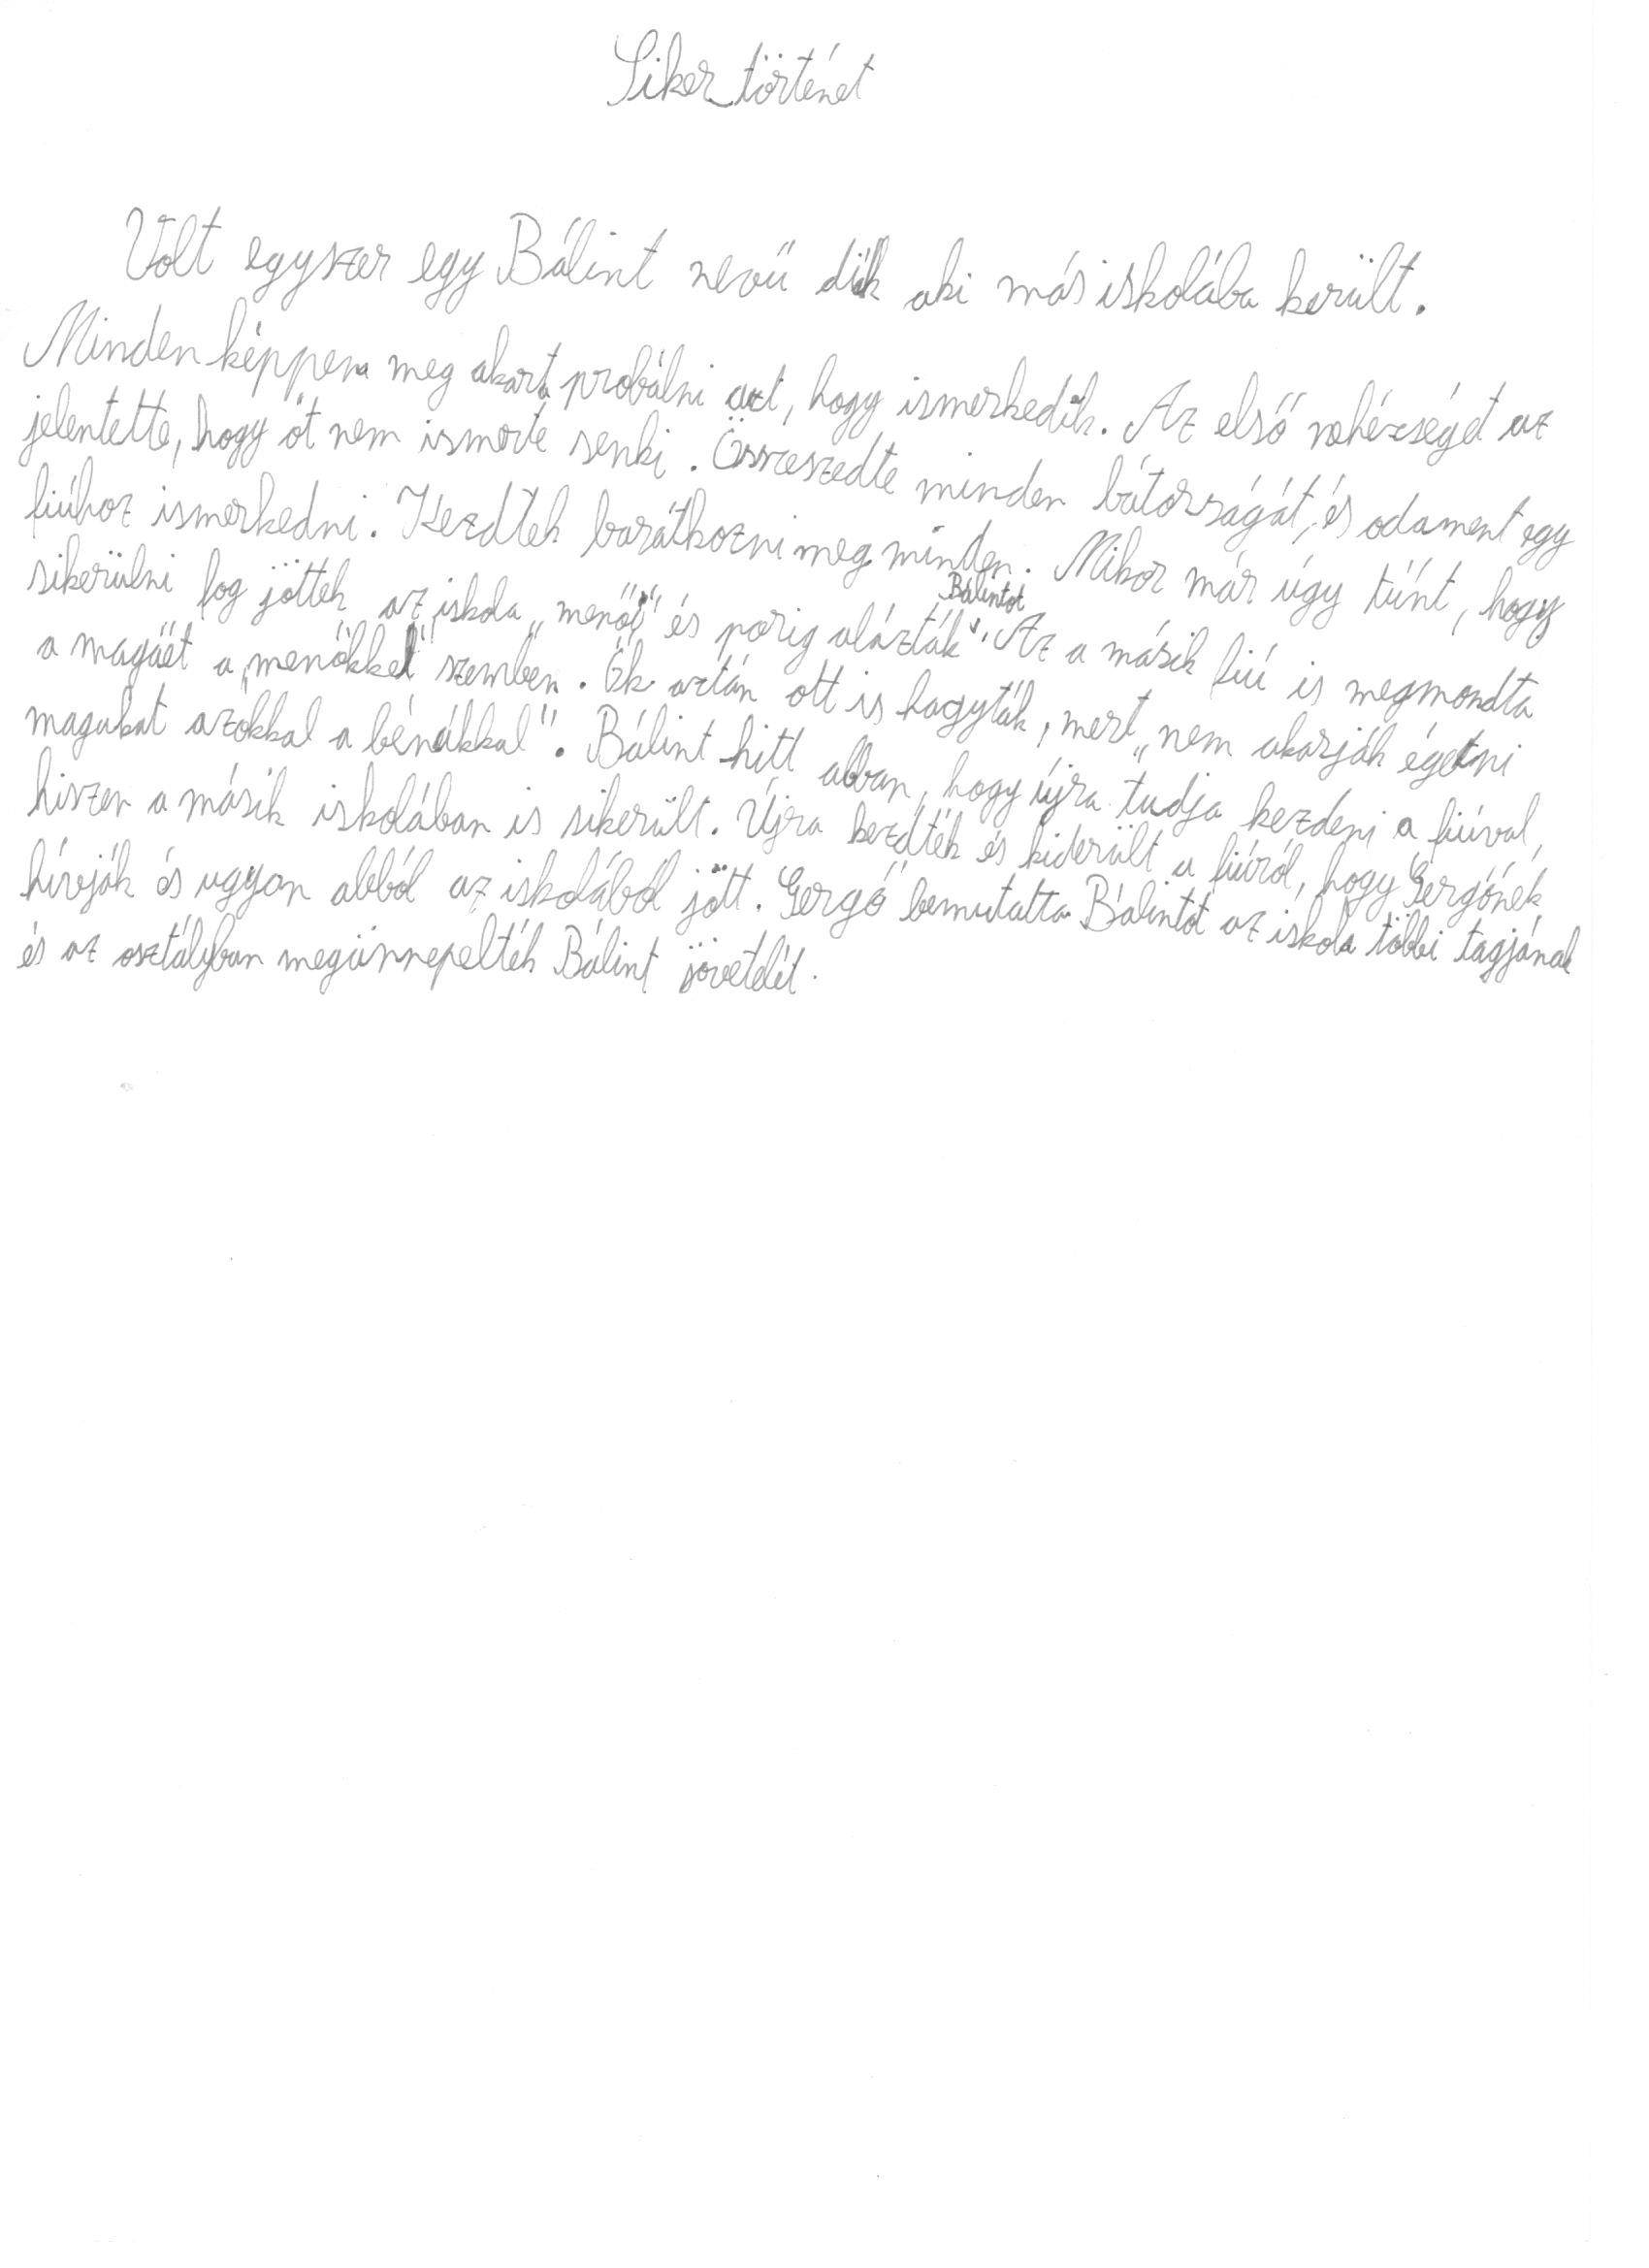 Siker történet
Volt egyszer egy Bálint nevű diák aki más iskolába került.
Minden képpen meg akart probálni azt, hogy ismerkedik. Az első nehézséget az
jelentette, hogy őt nem ismerte senki. Összeszedte minden bátorságát, és odament egy
fiúhoz ismerkedni. Kezdtek barátkozni meg minden. Mikor már úgy tűnt, hogy
sikerülni fog jöttek az iskola „menői" és porig alázták Bálintot. Az a másik fiú is megmondta
a magáét a „menőkkel" szemben. Ők aztán ott is hagyták, mert „nem akarják égetni
magukat azokkal a bénákkal". Bálint hitt abban, hogy újra tudja kezdeni a fiúval,
hiszen a másik iskolában is sikerült. Újra kezdték és kiderült a fiúról, hogy Gergőnek
hívják és ugyan abból az iskolából jött. Gergő bemutatta Bálintot az iskola többi tagjának
és az osztályban megünnepelték Bálint jövetelét.